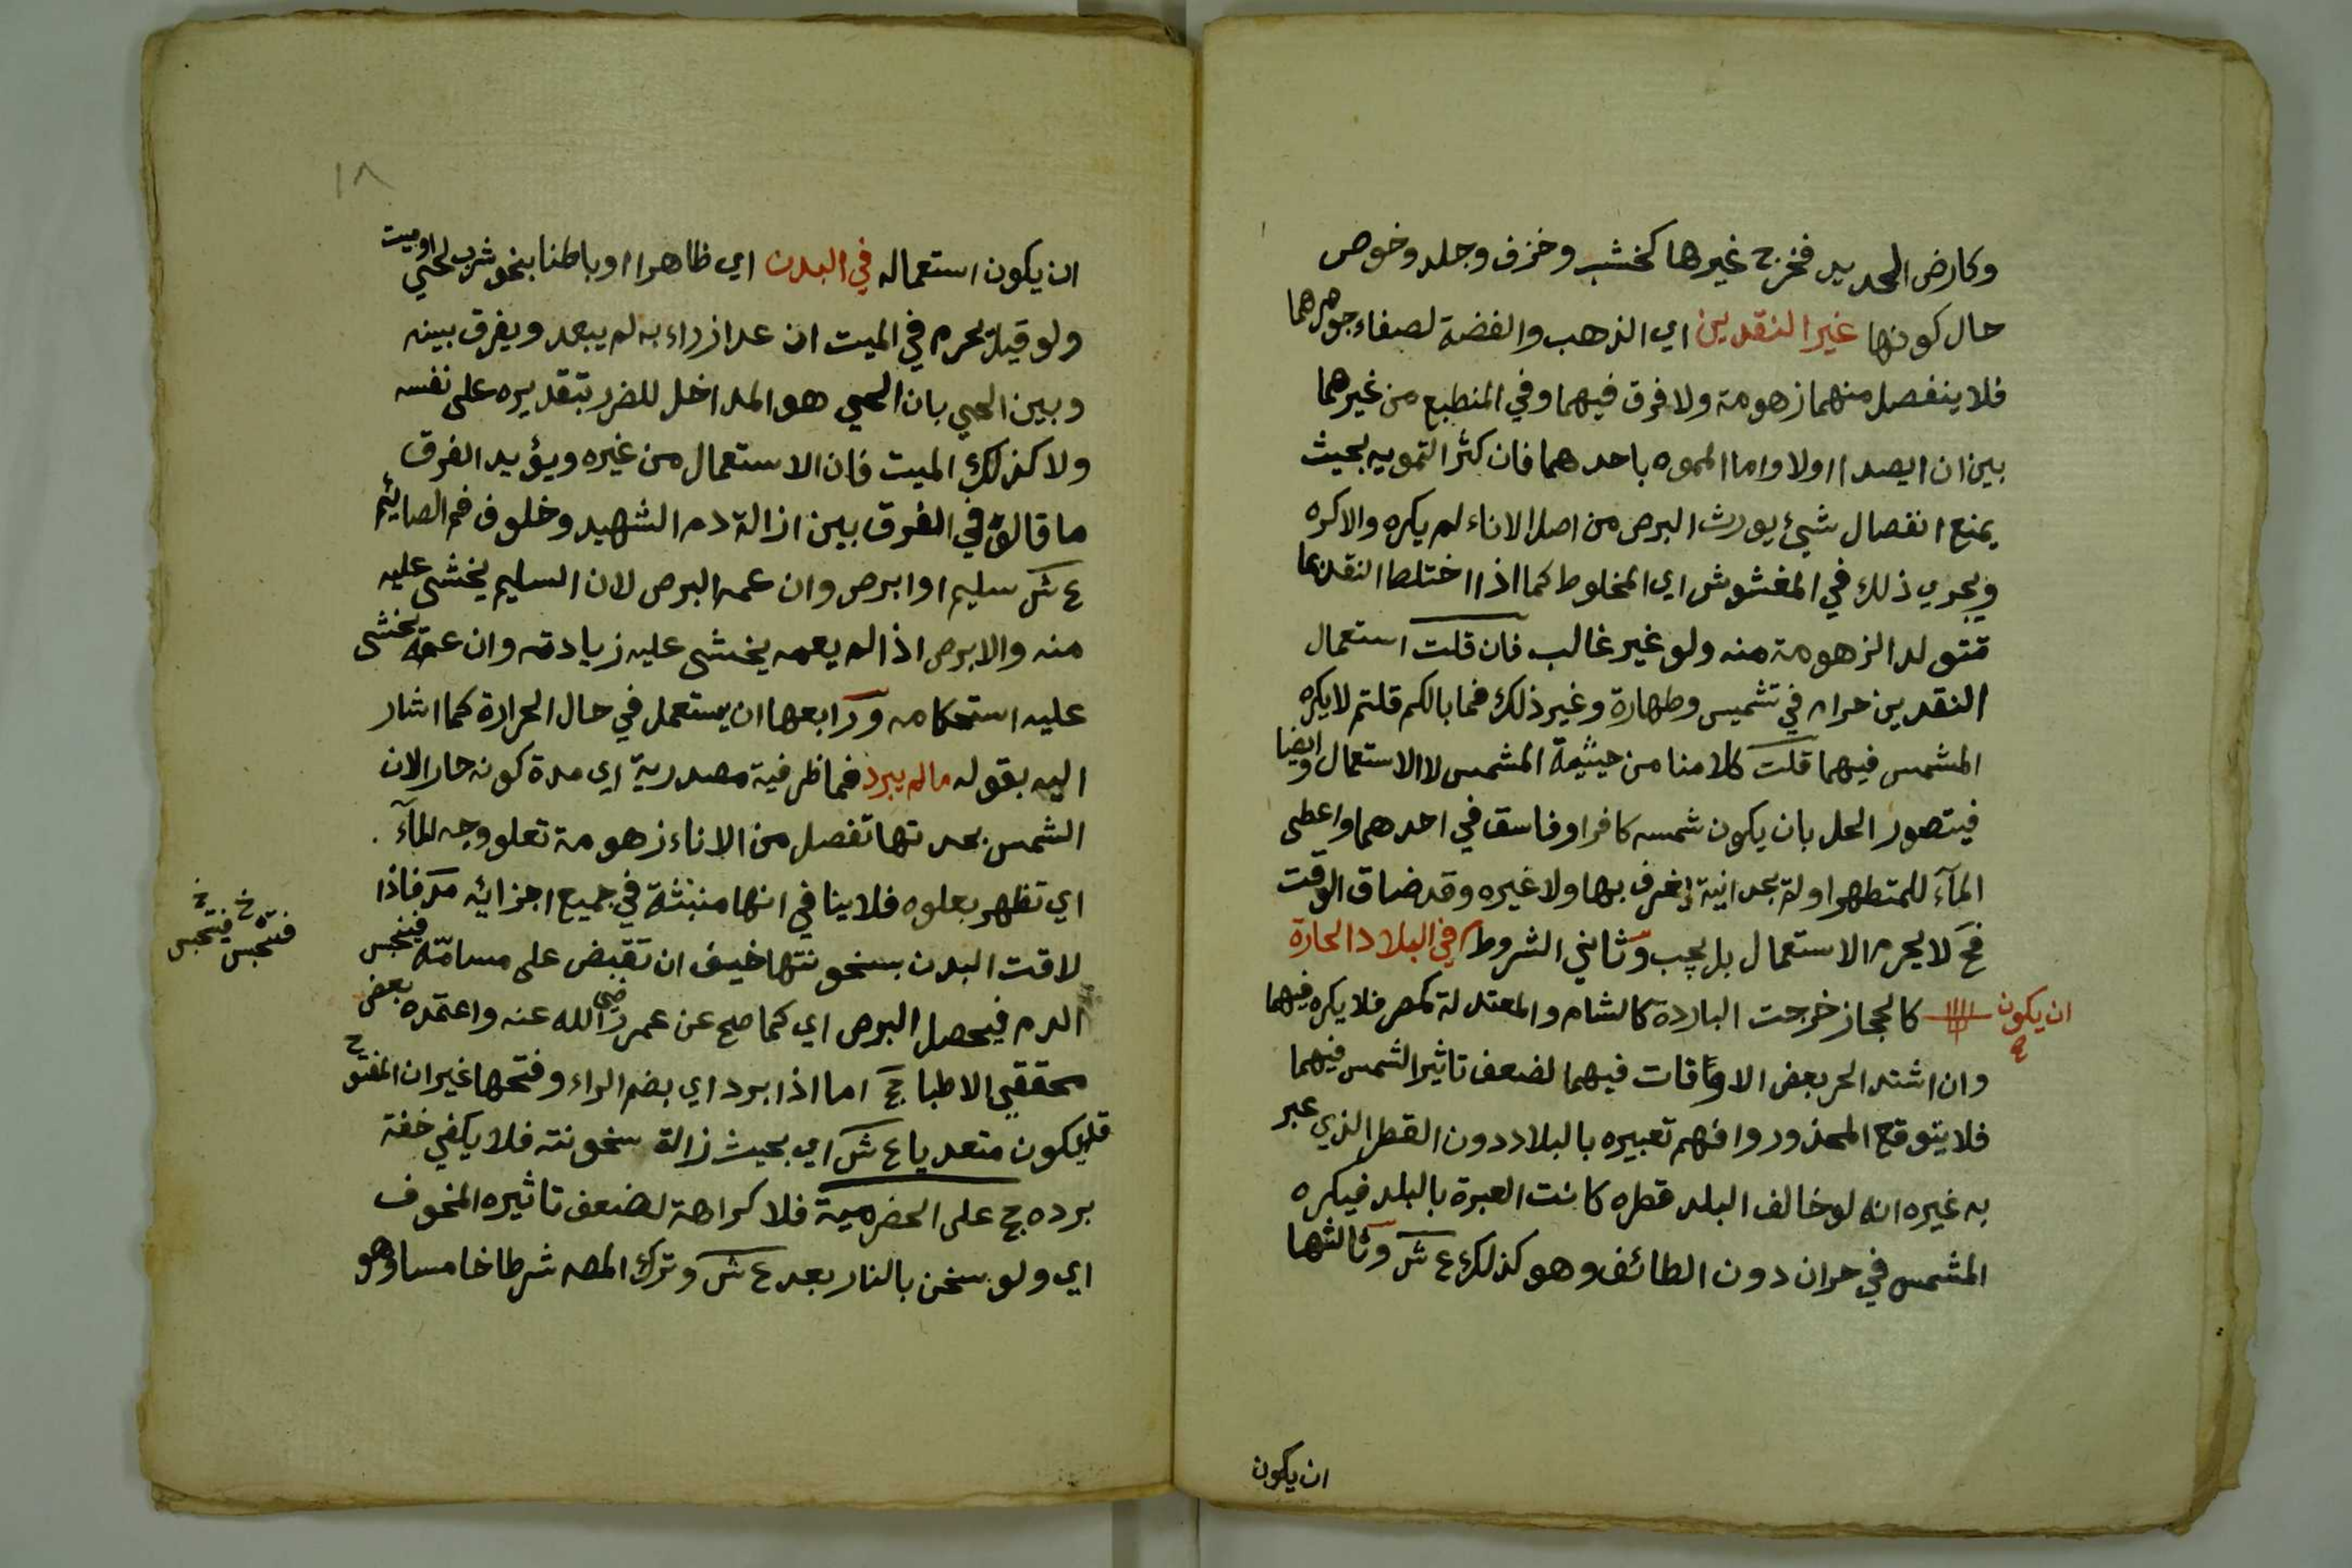 وكارض الحديد فخرج غيرها كخشب وخزف وجلد وخوص
حال كونها غير النقدين اي الذهب والفضة لصفاء جوهرهما
فلا ينفصل منهما زهومة ولا فرق فيهما وفي المنطبع من غيرهما
بين ان يصدا اولا واما المموه باحدهما فان كثر التمويه بحيث
يمنع انفصال شيئ يورث البرص من اصل الاناء لم يكره والاكره
ويجري ذلك في المغشوش اي المخلوط كما اذا اختلط النقد بما
تتولد الزهومة منه ولو غير غالب فان قلت استعمال
النقدين حرام في تشميس وطهارة وغير ذلك فما بالكم قلتم لا يكره
المشمس فيهما قلت كلامنا من حيثية المشمس لا الاستعمال وايضا
فيتصور الحل بان يكون شمسه كافر او فاسق في احدهما واعطى
المآء للمتطهر او لم يجد انية يغرف بها ولا غيره وقد ضاق الوقت
فح لا يحرم الاستعمال بل يجب وثاني الشروط في البلاد الحارة
ان يكون
كالحجاز خرجت الباردة كالشام والمعتدلة كمصر فلا يكره فيهما
وان اشتد الحر بعض الاوقات فيهما لضعف تاثير الشمس فيهما
فلا يتوقع المحذور وافهم تعبيره بالبلاد دون القطر الذي عبر
به غيره انه لو خالف البلد قطره كانت العبرة بالبلد فيكره
المشمس في حران دون الطائف وهو كذلك ع ش وثالثها
ان يكون
١٨
ان يكون استعماله في البدن اي ظاهرا او باطنا بنحو شرب لحي او ميت
ولو قيل يحرم في الميت ان عد ازراء به لم يبعد ويفرق بينه
وبين الحي بان الحي هو المداخل للضرر بتقديره على نفسه
ولا كذلك الميت فان الاستعمال من غيره ويؤيد الفرق
ما قالوه في الفرق بين ازالة دم الشهيد وخلوف فم الصائم
ع ش سليم او ابرص وان عمه البرص لان السليم يخشى عليه
منه والابرص اذا لم يعمه يخشى عليه زيادته وان عمه يخشى
عليه استحكامه ورابعها ان يستعمل في حال الحرارة كما اشار
اليه بقوله ما لم يبرد فما ظرفية مصدرية اي مدة كونه حارا لان
الشمس بحدتها تفصل من الاناء زهومة تعلو وجه المآء
اي تظهر بعلوه فلا ينافي انها منبثة في جميع اجزائه مر فاذا
لاقت البدن بسخونتها خيف ان تقبض على مسامه فينحبس
فتحبس خ فيتحبس خ
الدم فيحصل البرص اي كما صح عن عمر رضي الله عنه واعتمده بعض
محققي الاطبا حج اما اذا برد اي بضم الراء وفتحها غير ان المفتوح
قد يكون متعديا ع ش اي بحيث زالة سخونته فلا يكفي خفة
برده حج على الحضرمية فلا كراهة لضعف تاثيره المخوف
اي ولو سخن بالنار بعد ع ش وترك المصه شرطا خامسا وهو